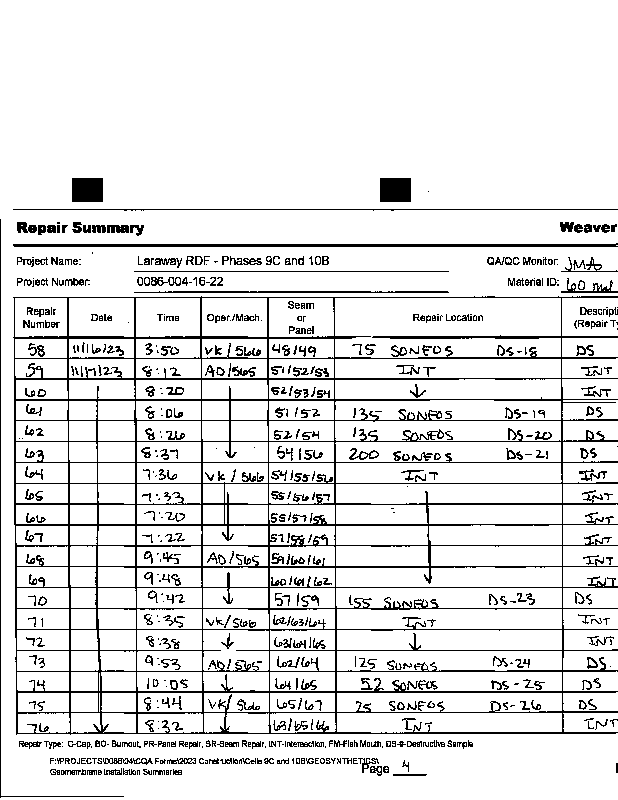 Repair Summary Weaver
Project Name: Laraway RDF - Phases 9C and 10B QA/QC Monitor: JMA
Project Number: 0086-004-16-22 Material ID: 60 mil
Repair Number Date Time Oper./Mach. Seam or Panel Repair Location Descripti (Repair Ty
58 11/16/23 3:50 VK/566 48/49 75 SONEOS DS-18 DS
59 11/17/23 8:12 AD/565 51/52/53 INT INT
60 8:20 52/53/54 INT
61 8:06 51/52 135 SONEOS DS-19 DS
62 8:26 52/54 135 SONEOS DS-20 DS
63 8:37 54/56 200 SONEOS DS-21 DS
64 7:36 VK/566 54/55/56 INT INT
65 7:33 55/56/57 INT
66 7:20 55/57/58 INT
67 7:22 57/58/59 INT
68 9:45 AD/565 59/60/61 INT
69 9:48 60/61/62 INT
70 9:42 57/59 155 SONEOS DS-23 DS
71 8:35 VK/566 62/63/64 INT INT
72 8:38 63/64/65 INT
73 9:53 AD/565 62/64 125 SONEOS DS-24 DS
74 10:05 64/65 52 SONEOS DS-25 DS
75 8:44 VK/566 65/67 25 SONEOS DS-26 DS
76 8:32 63/65/66 INT INT
Repair Type: C-Cap, BO- Burnout, PR-Panel Repair, SR-Seam Repair, INT-Intersection, FM-Fish Mouth, DS-#-Destructive Sample
F:\PROJECTS\0086\04\CQA Forms\2023 Construction\Cells 9C and 10B\GEOSYNTHETICS\
Geomembrane Installation Summaries Page 4